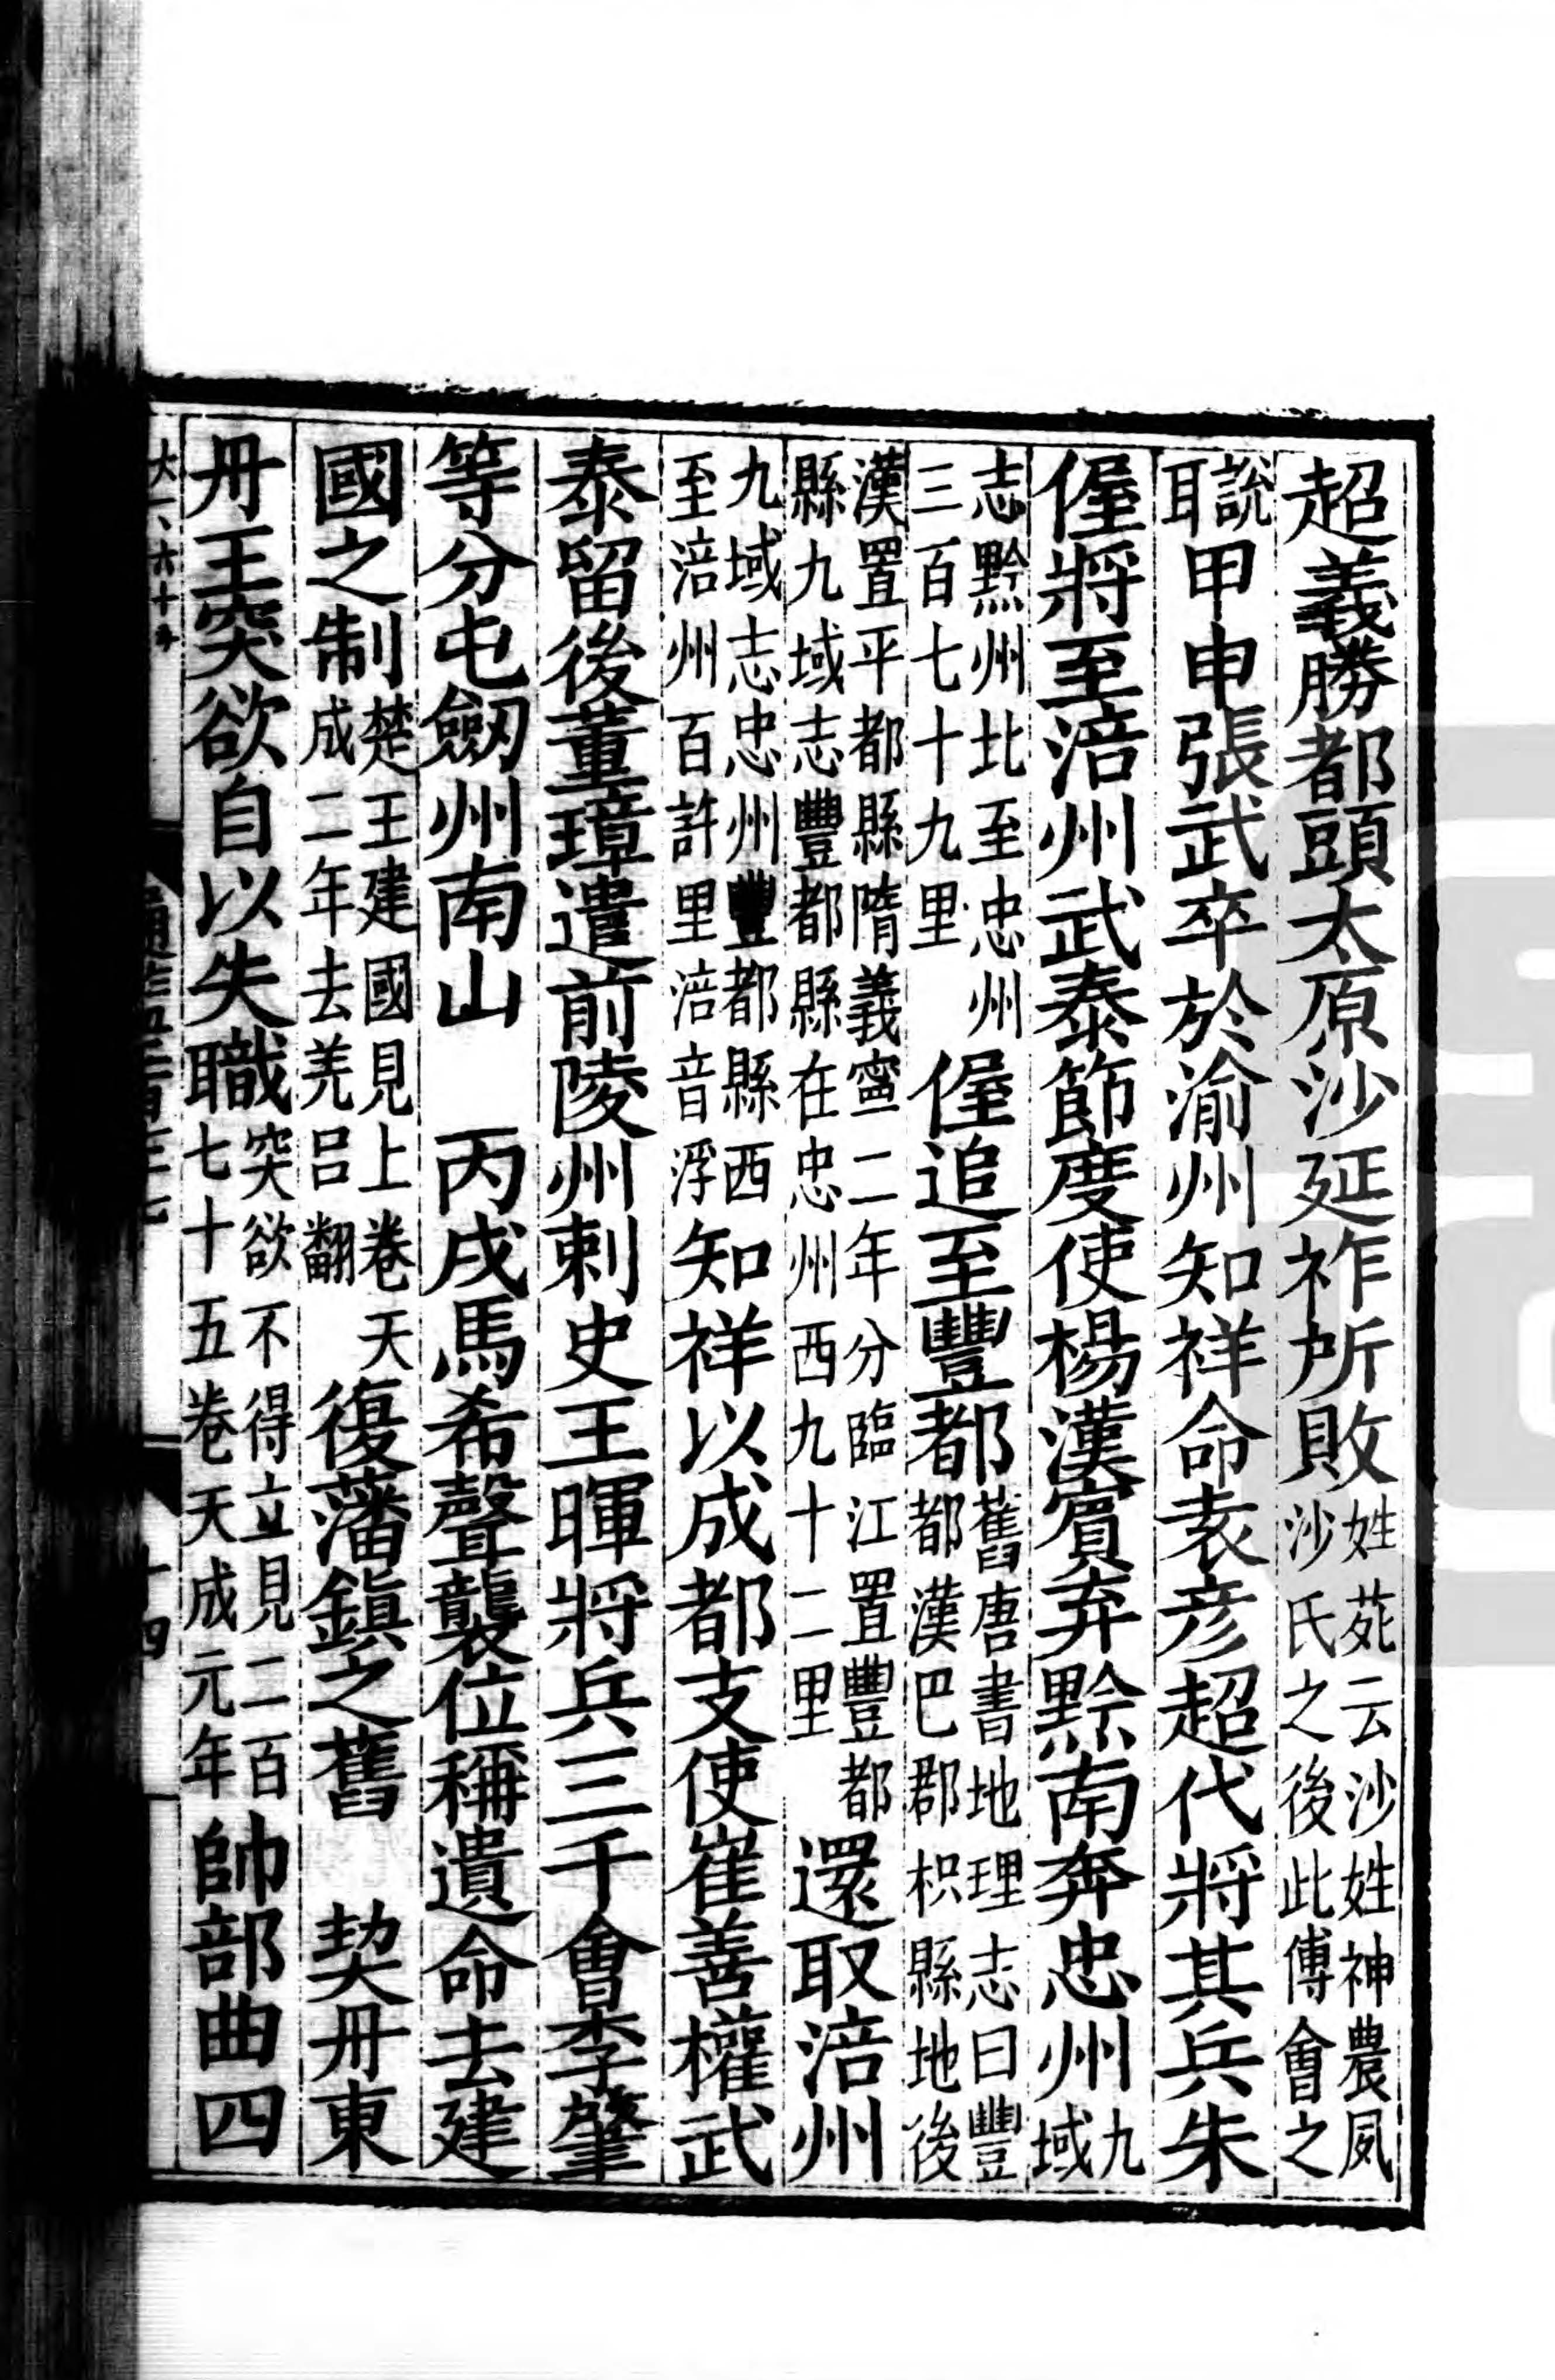 超義勝都頭太原沙延祚所敗姓苑云沙姓神農夙沙氏之後此傅會之
說耳甲申張武卒於渝州知祥命袁彦超代將其兵朱
偓將至涪州武泰節度使楊漢賓弃黔南奔忠州九域
志黔州北至忠州三百七十九里偓追至豐都舊唐書地理志曰豐都漢巴郡枳縣地後
漢置平都縣隋義寧二年分臨江置豐都縣九域志豐都縣在忠州西九十二里還取涪州
九域志忠州豐都縣西至涪州百許里涪音浮知祥以成都支使崔善權武
泰留後董璋遣前陵州刺史王暉將兵三千會李肇
等分屯劒州南山　丙戌馬希聲襲位稱遺命去建
國之制楚王建國見上卷天成二年去羌呂翻復藩鎮之舊　契丹東
丹王突欲自以失職突欲不得立見二百七十五卷天成元年帥部曲四